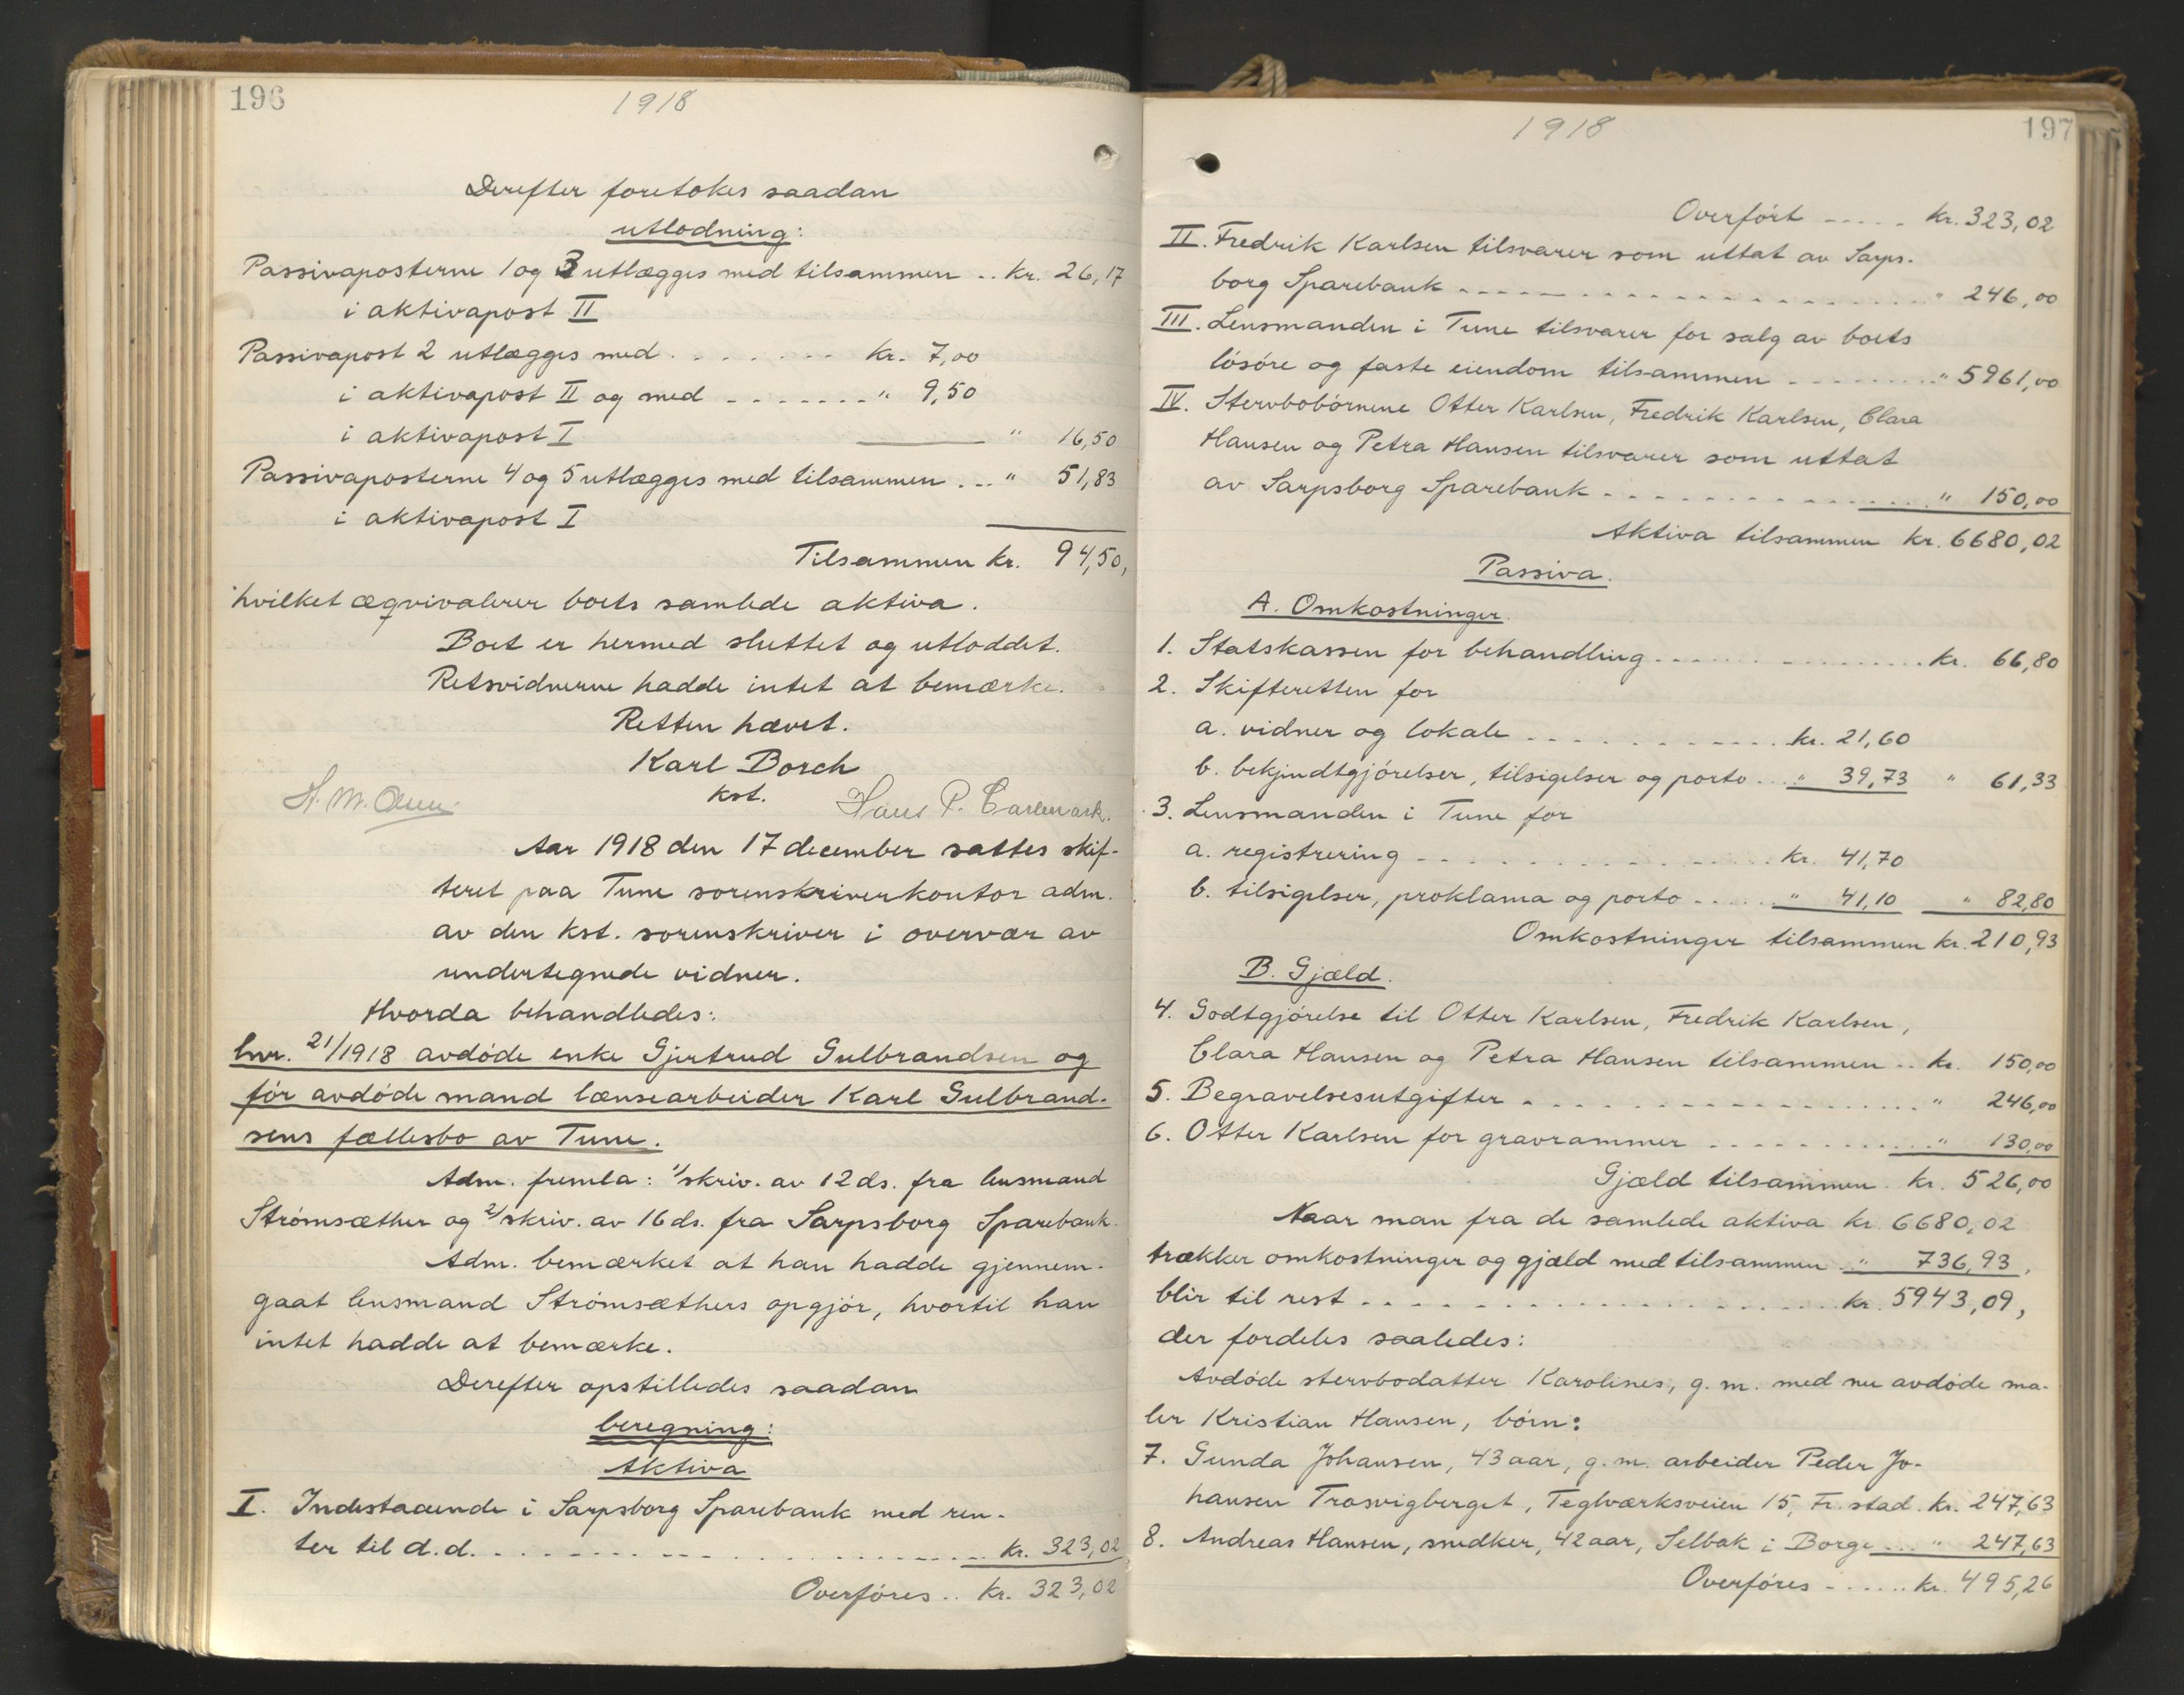 196
1918
Derefter foretokes saadan
utlodning:
Passivaposterne 1 og 3 utlægges med tilsammen .. kr. 26,17
i aktivapost II
Passivapost 2 utlægges med . . . . . . . kr. 7,00
i aktivapost II og med . . . . . . . " 9,50
i aktivapost I " 16,50
Passivaposterne 4 og 5 utlægges med tilsammen ... " 51,83
i aktivapost I
Tilsammen kr. 94,50,
hvilket æqvivalerer boets samlede aktiva.
Boet er hermed sluttet og utloddet.
Retsvidnerne hadde intet at bemærke.
Retten hævet.
Karl Borch
kst.
H. M. Olsen. Hans P. Carlmark.
Aar 1918 den 17 december sattes skif-
teret paa Tune sorenskriverkontor adm.
av den kst. sorenskriver i overvær av
undertegnede vidner.
Hvorda behandledes:
lnr. 21/1918 avdøde enke Gjertrud Gulbrandsen og
før avdøde mand lænsearbeider Karl Gulbrand-
sens fællesbo av Tune.
Adm. fremla: 1/skriv. av 12 ds. fra lensmand
Strømsæther og 2/skriv. av 16 ds. fra Sarpsborg Sparebank.
Adm. bemærket at han hadde gjennem-
gaat lensmand Strømsæthers opgjør, hvortil han
intet hadde at bemærke.
Derefter opstilledes saadan
beregning:
Aktiva
I. Indestaaende i Sarpsborg Sparebank med ren-
ter til d.d. . . . . . . . . . . . . kr. 323,02
Overføres .. kr. 323,02
1918
197
Overført - - - - - kr. 323,02
II. Fredrik Karlsen tilsvarer som uttat av Sarps-
borg Sparebank - - - - - - - - - - - " 246,00
III. Lensmanden i Tune tilsvarer for salg av boets
løsøre og faste eiendom tilsammen - - - - - - " 5961,00
IV. Stervbobørnene Otter Karlsen, Fredrik Karlsen, Clara
Hansen og Petra Hansen tilsvarer som uttat
av Sarpsborg Sparebank - - - - - - - - - " 150,00
Aktiva tilsammen kr. 6680,02
Passiva.
A. Omkostninger.
1. Statskassen for behandling . . . . . . . . . kr. 66,80
2. Skifteretten for
a. vidner og lokale . . . . . . . . . kr. 21,60
b. bekjendtgjørelser, tilsigelser og porto . . " 39,73 " 61,33
3. Lensmanden i Tune for
a. registrering - - - - - - - - - - kr. 41,70
b. tilsigelser, proklama og porto - - - - " 41,10 " 82,80
Omkostninger tilsammen kr. 210,93
B. Gjæld.
4. Godtgjørelse til Otter Karlsen, Fredrik Karlsen,
Clara Hansen og Petra Hansen tilsammen .. kr. 150,00
5. Begravelsesutgifter - - - - - - - - - - - " 246,00
6. Otter Karlsen for gravrammer - - - - - - - " 130,00
Gjæld tilsammen kr. 526,00
Naar man fra de samlede aktiva kr 6680,02
trækker omkostninger og gjæld med tilsammen " 736,93,
blir til rest - - - - - - - - - - - - kr. 5943,09,
der fordeles saaledes:
Avdøde stervbodatter Karolines, g. m. med nu avdøde ma-
ler Kristian Hansen, børn:
7. Gunda Johansen, 43 aar, g. m. arbeider Peder Jo-
hansen Trosvigberget, Teglværksveien 15, Fr. stad . kr. 247,63
8. Andreas Hansen, snedker, 42 aar, Selbak i Borge . . . " 247,63
Overføres - . . . . . kr. 495,26